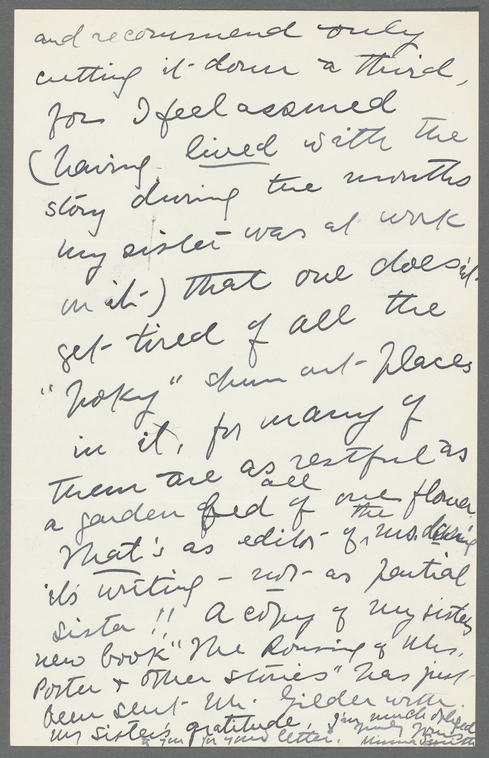 and recommend only
cutting it down a third,
for I feel assured
(having lived with the
story during the months
my sister was at work
on it) that one does n't
get tired of all the
"poky" spun out places
in it, for many of
them are as restful as
a garden bed all of one flower.
That's as editor of the ms. during
its writing – not as partial
sister!! A copy of my sister's
new book "The Rousing of Mrs.
Potter & other stories" has just
been sent Mr. Gilder with
my sister's gratitude. I'm much obliged
to you for your letter. Truly yours